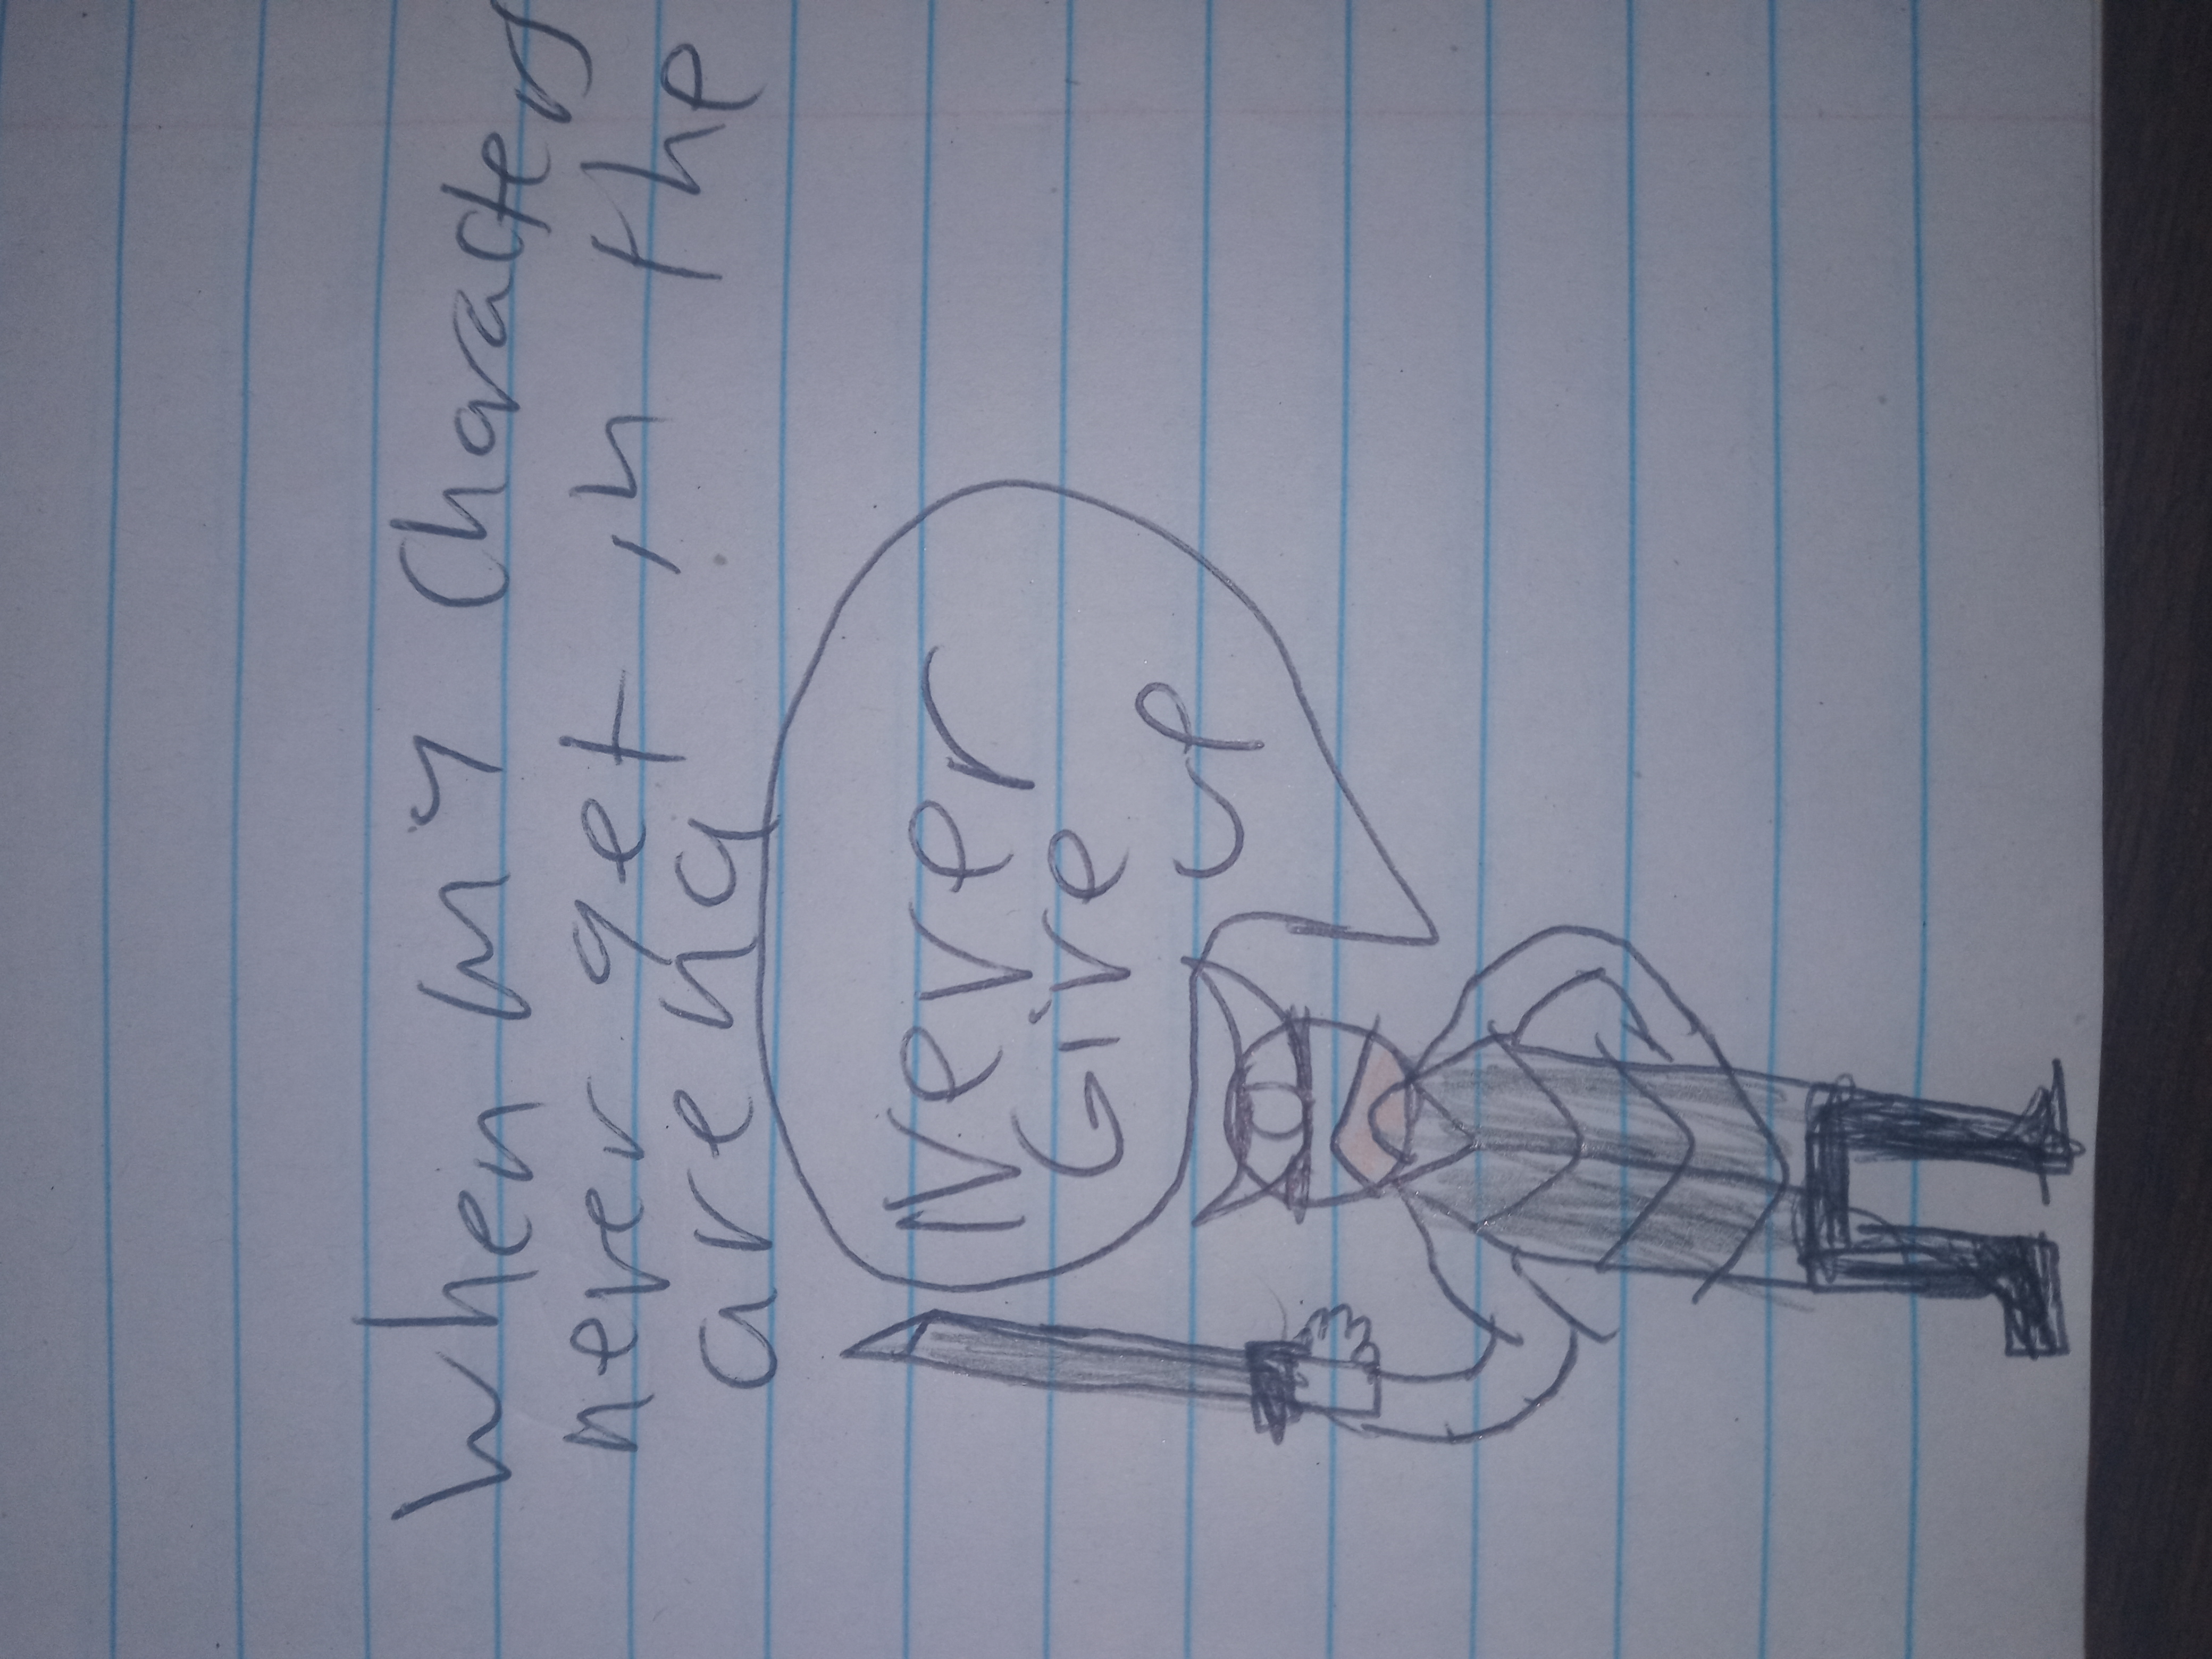 When my Characters
never get in the
arena
Never
Give
up